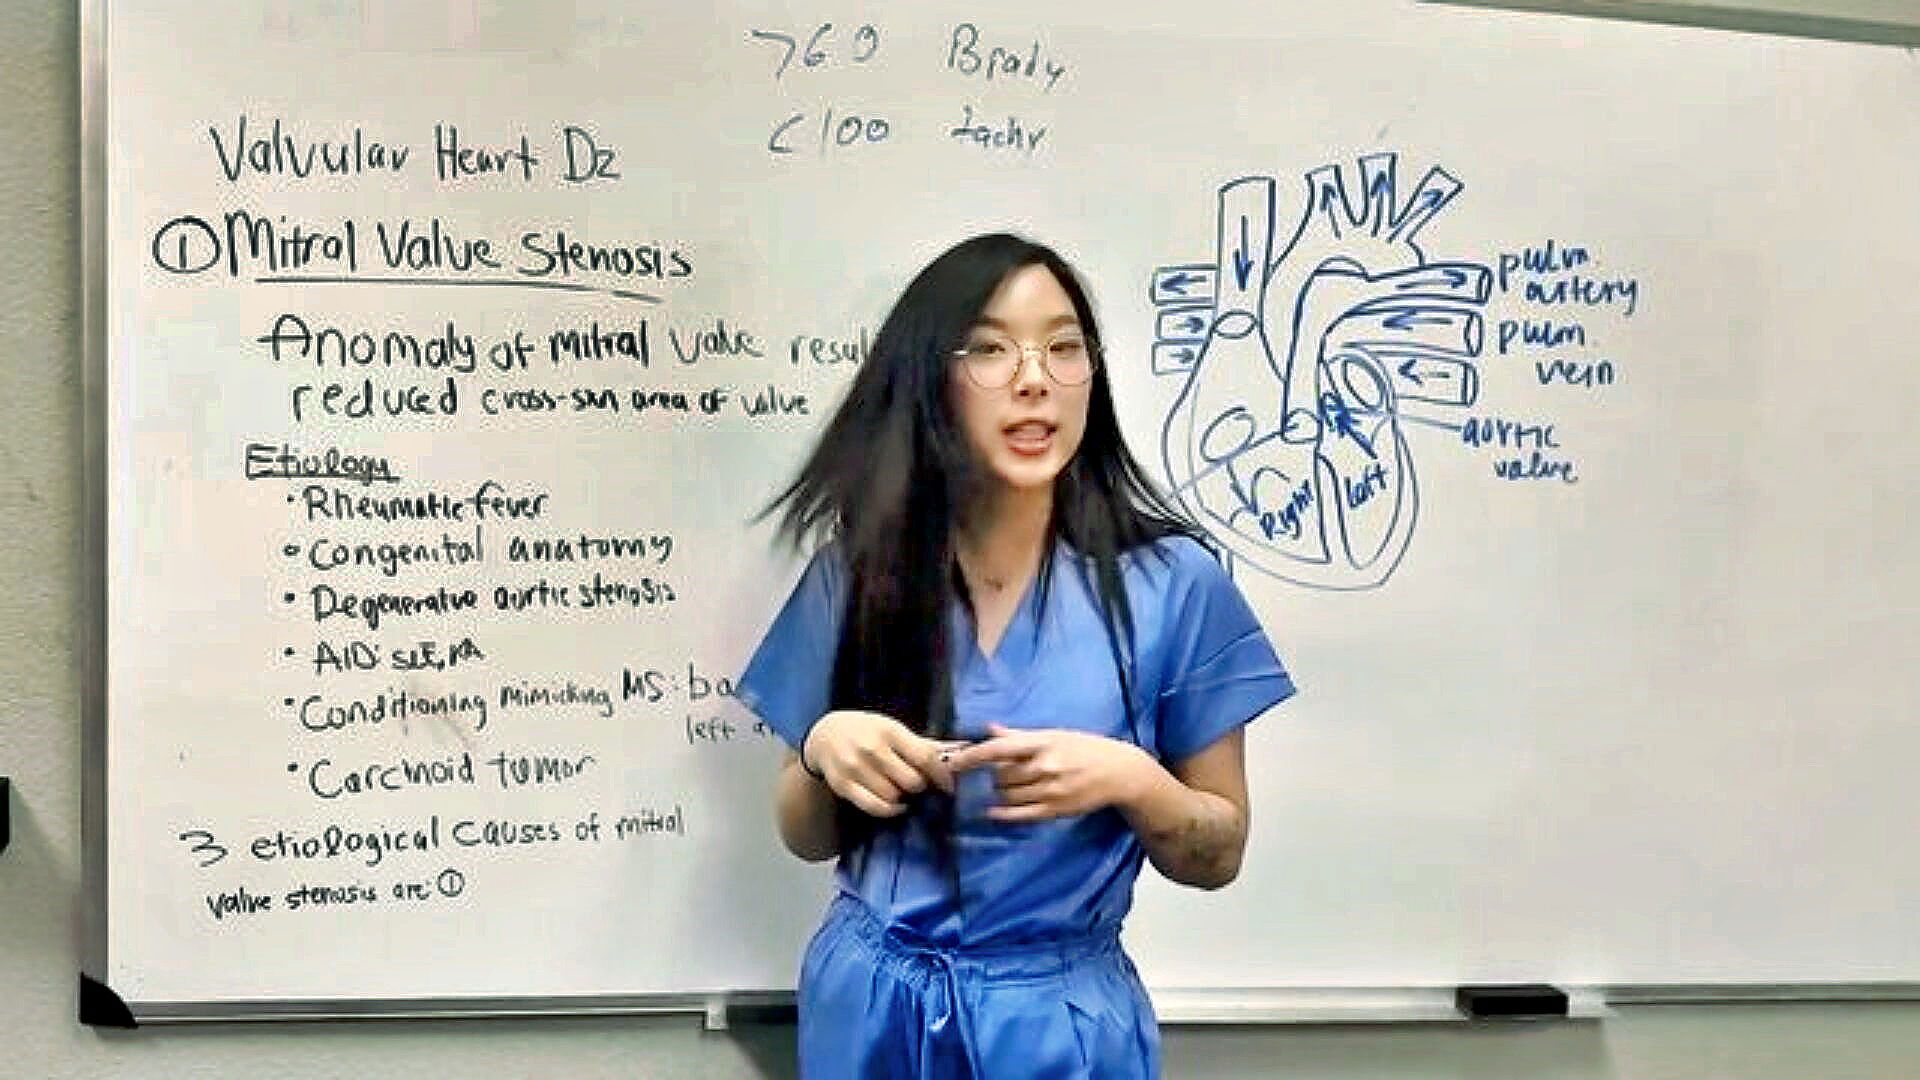 769 Brady
<100 tachy
Valvular Heart Dz
① Mitral Valve Stenosis
Anomaly of mitral valve resul
reduced cross-sxn area of valve
Etiology
• Rheumatic fever
• Congenital anatomy
• Degenerative aortic stenosis
• AID: SLE, RA
• Conditioning mimicking MS: ba
left a
• Carcinoid tumor
3 etiological causes of mitral
valve stenosis are: ①
pulm.
artery
pulm.
vein
aortic
valve
Right
Left